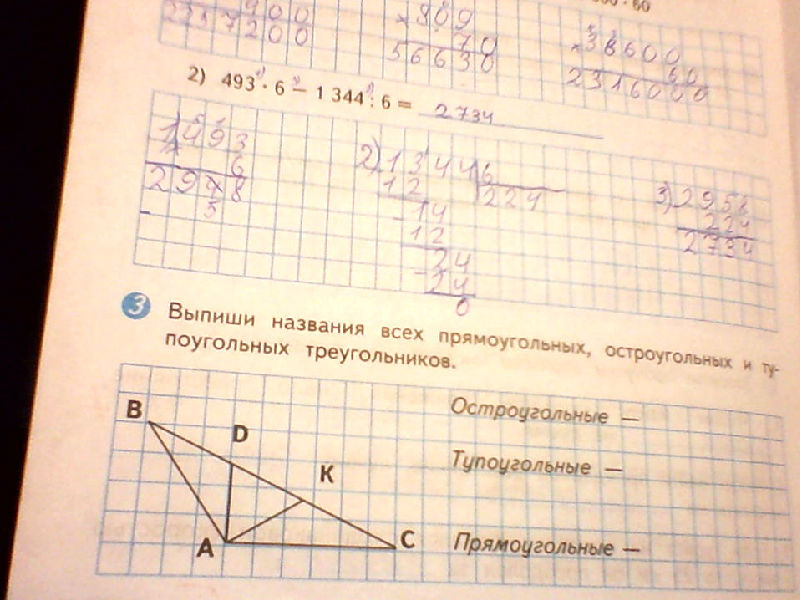 · 60
900
2217200
× 809
70
56630
× 38600
60
2316000
2) 493 · 6 − 1 344 : 6 = 2734
1) 493
6
2958
2) 1344 6
12 224
14
12
24
24
0
3) 2958
224
2734
3 Выпиши названия всех прямоугольных, остроугольных и ту-
поугольных треугольников.
B
D
K
A
C
Остроугольные —
Тупоугольные —
Прямоугольные —